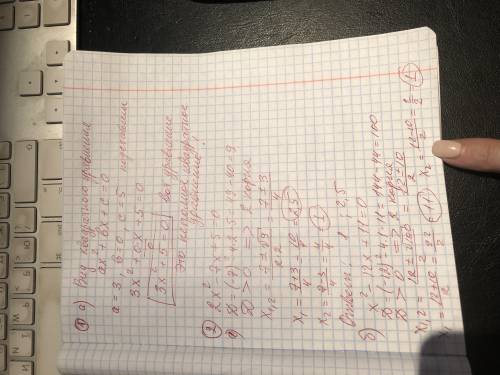 ① а) Вид квадратного уравнения
ax² + bx + c = 0
a = 3, b = 0, c = 5 подставим
3x² + 0x + 5 = 0
3x² + 5 = 0 вот уравнение
это неполное квадратное
уравнение!
② 2x² - 7x + 5 = 0
D = (-7)² - 4·2·5 = 49 - 40 = 9
D > 0 => 2 корня
x₁,₂ = 7±√9 / 2·2 = 7±3 / 4
x₁ = 7+3 / 4 = 10 / 4 = 2,5
x₂ = 7-3 / 4 = 4 / 4 = 1
Ответ: 1; 2,5
б) x² - 12x + 11 = 0
D = (-12)² - 4·1·11 = 144 - 44 = 100
D > 0 => 2 корня
x₁,₂ = 12±√100 / 2 = 12±10 / 2
x₁ = 12+10 / 2 = 22 / 2 = 11 x₂ = 12-10 / 2 = 2 / 2 = 1